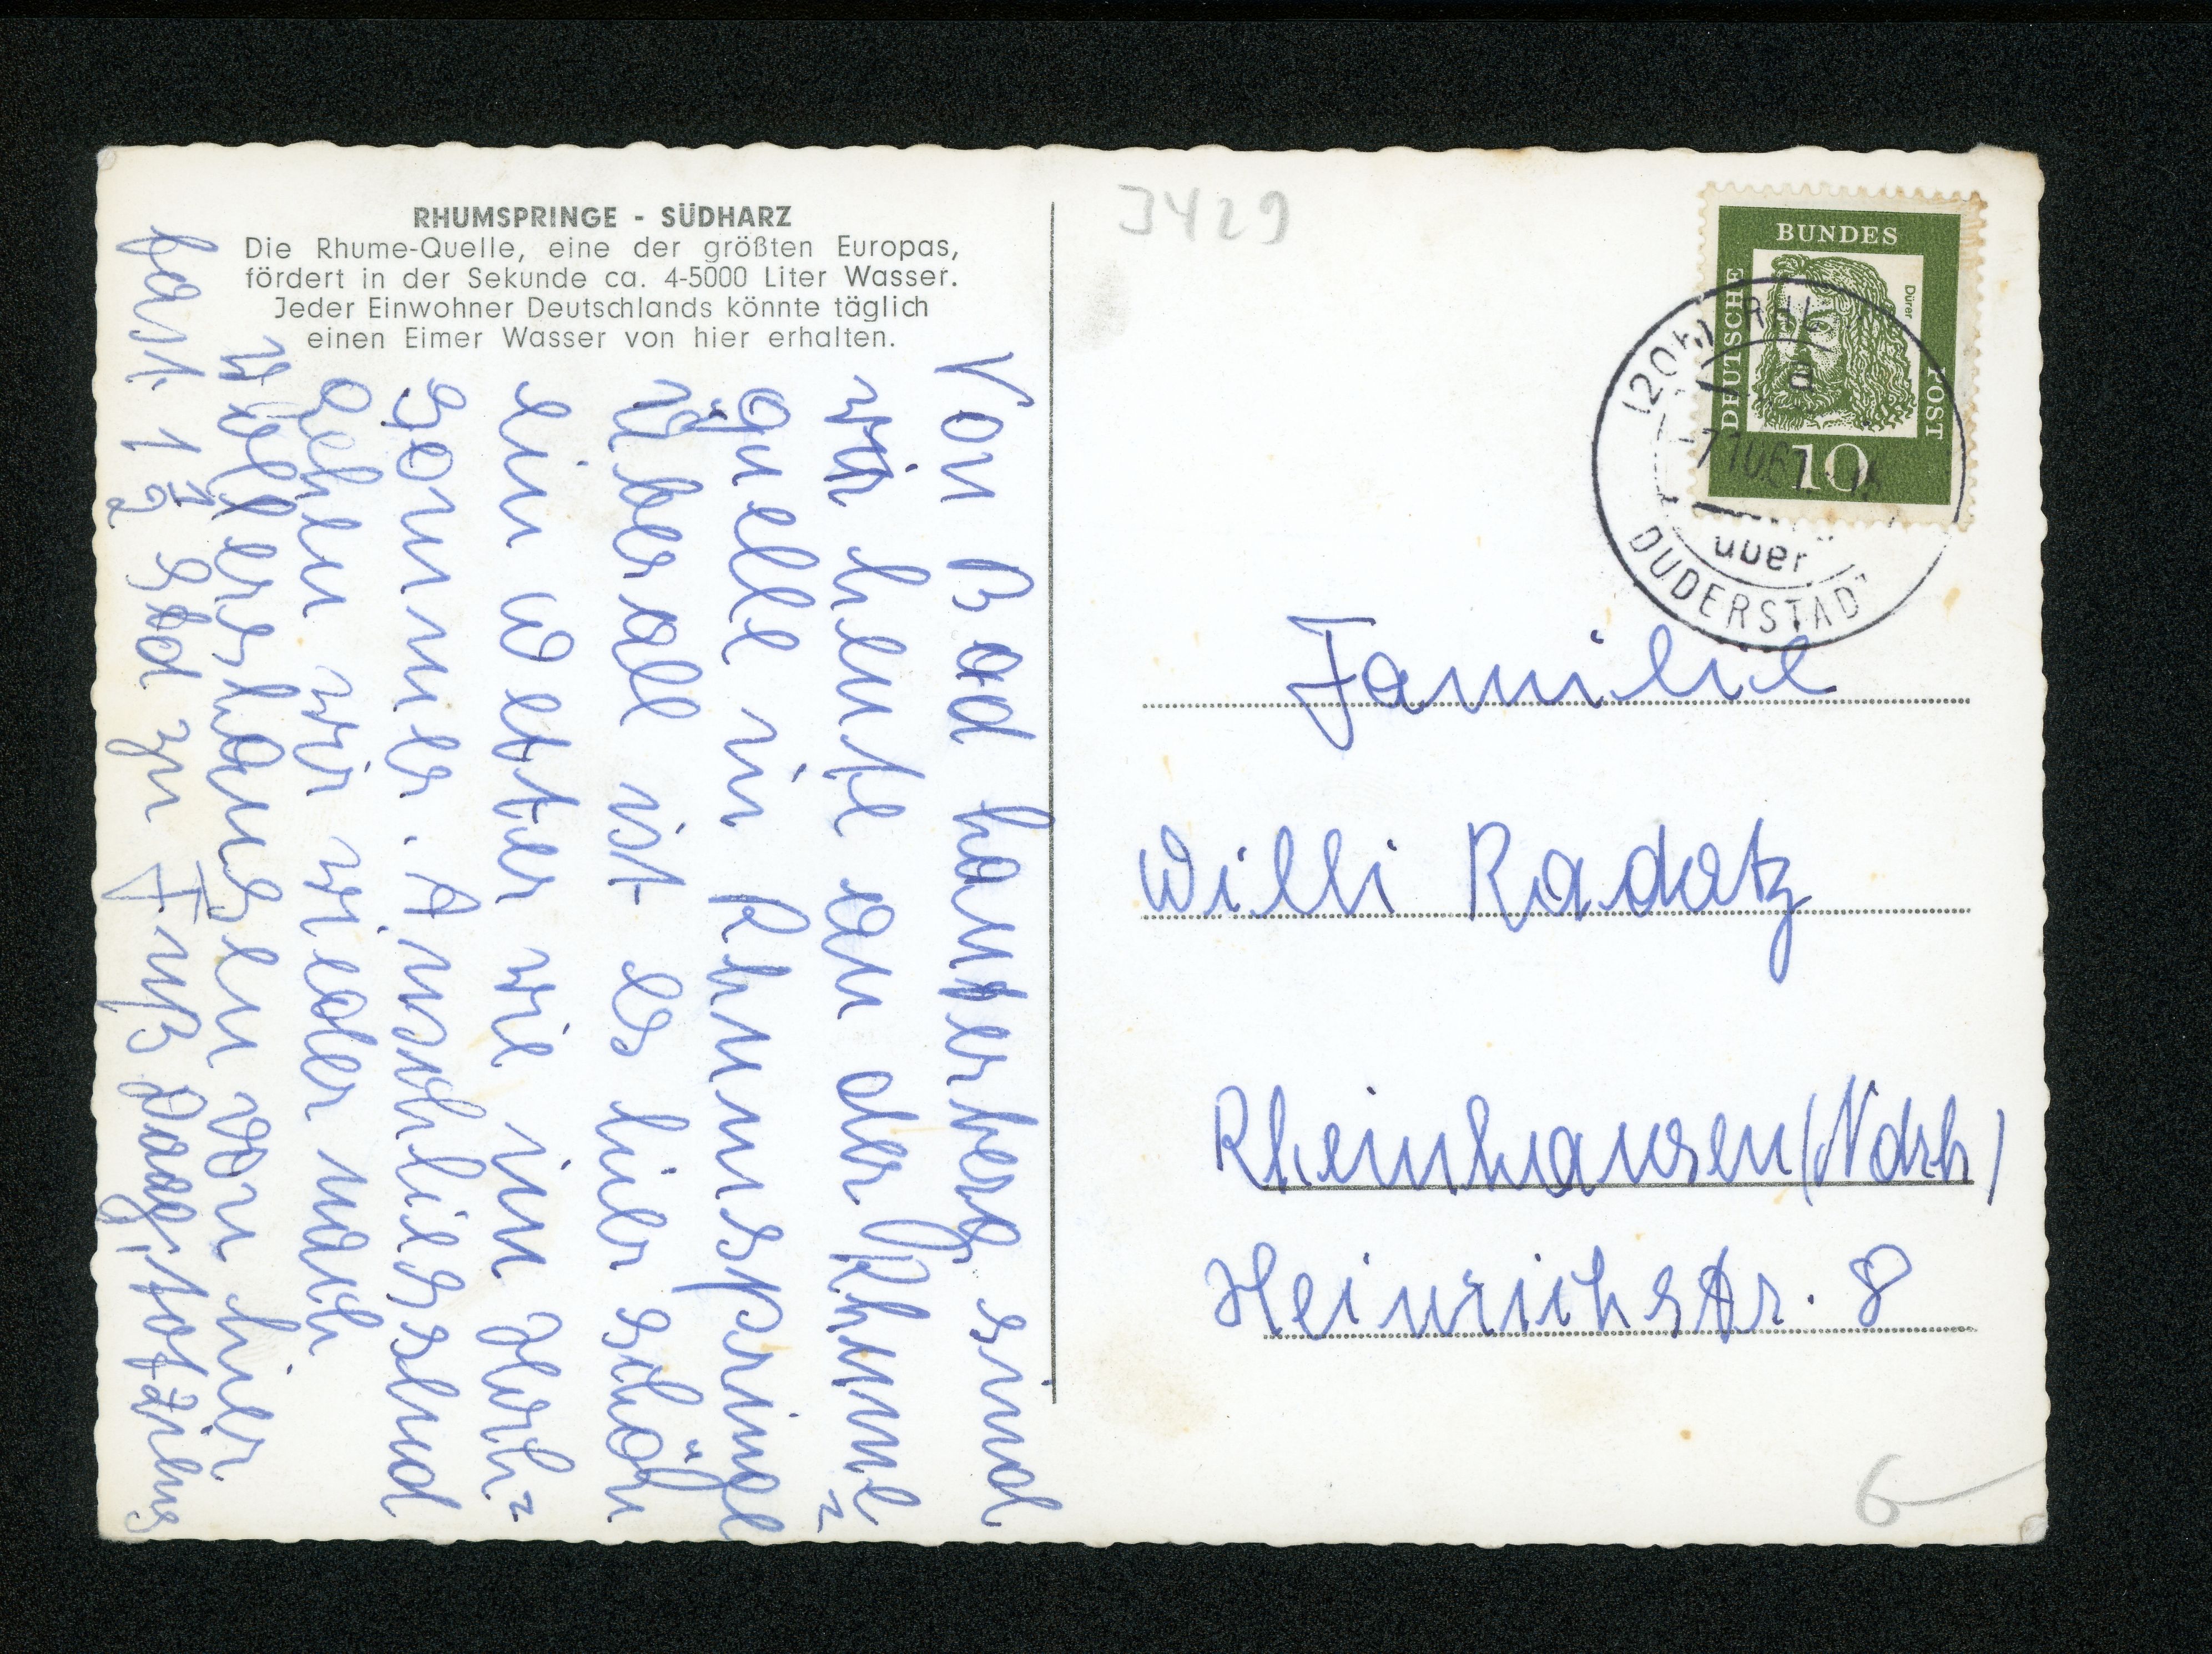 RHUMSPRINGE - SÜDHARZ
Die Rhume-Quelle, eine der größten Europas,
fördert in der Sekunde ca. 4-5000 Liter Wasser.
Jeder Einwohner Deutschlands könnte täglich
einen Eimer Wasser von hier erhalten.
Von Bad Lauterberg sind
wir heute an der Rhume=
quelle in Rhumspringe
Überall ist es hier schön
ein Wetter wie im Hoch=
sommer. Anschliessend
gehen wir wieder nach
Wollershausen von hier
fast 1 1/2 Std zu Fuß
3429
DEUTSCHE
BUNDES
POST
Dürer
10
(20b) RHU
a
über
DUDERSTAD
Familie
Willi Radatz
Rheinhausen (Ndrh)
Heinrichstr. 8
6